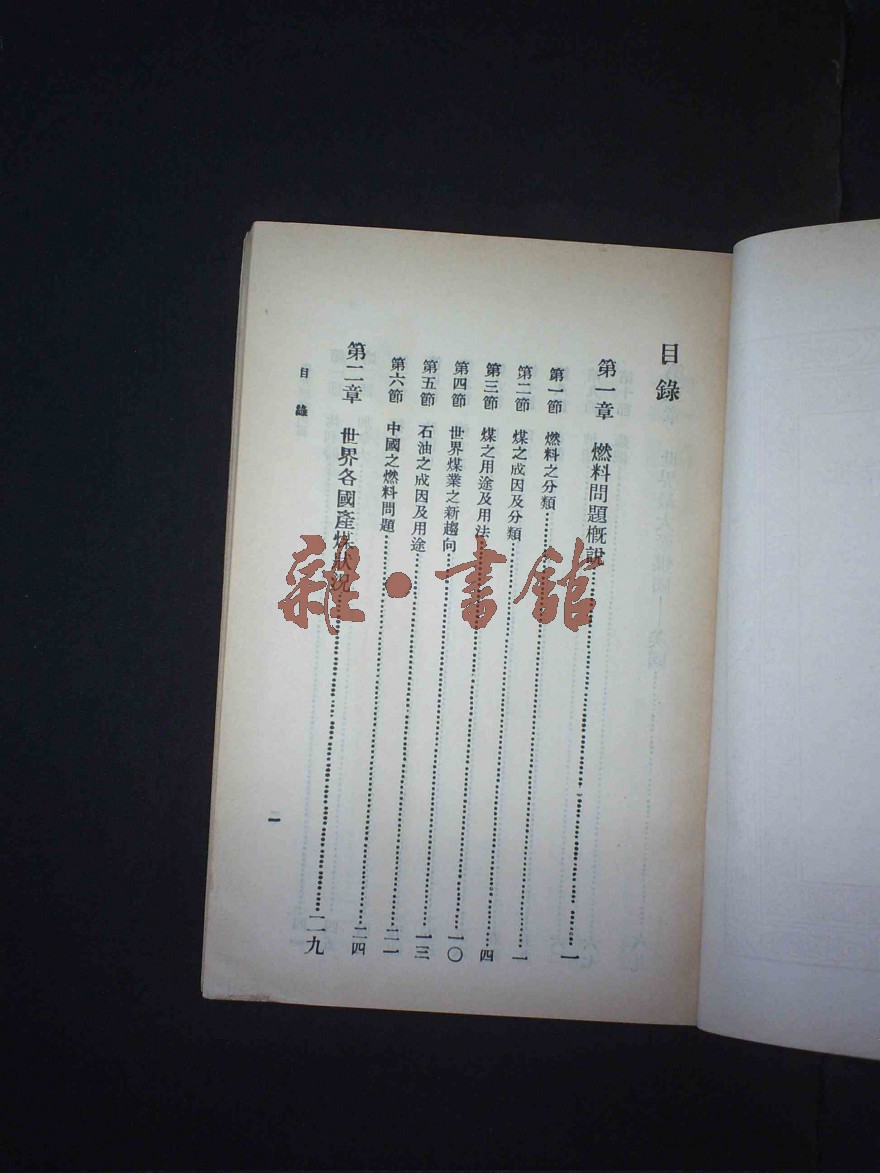 目錄
第一章 燃料問題概說……一
第一節 燃料之分類……一
第二節 煤之成因及分類……四
第三節 煤之用途及用法……一〇
第四節 世界煤業之新趨向……一三
第五節 石油之成因及用途……二一
第六節 中國之燃料問題……二四
第二章 世界各國產煤狀況……二九
目錄
一
雜·書館